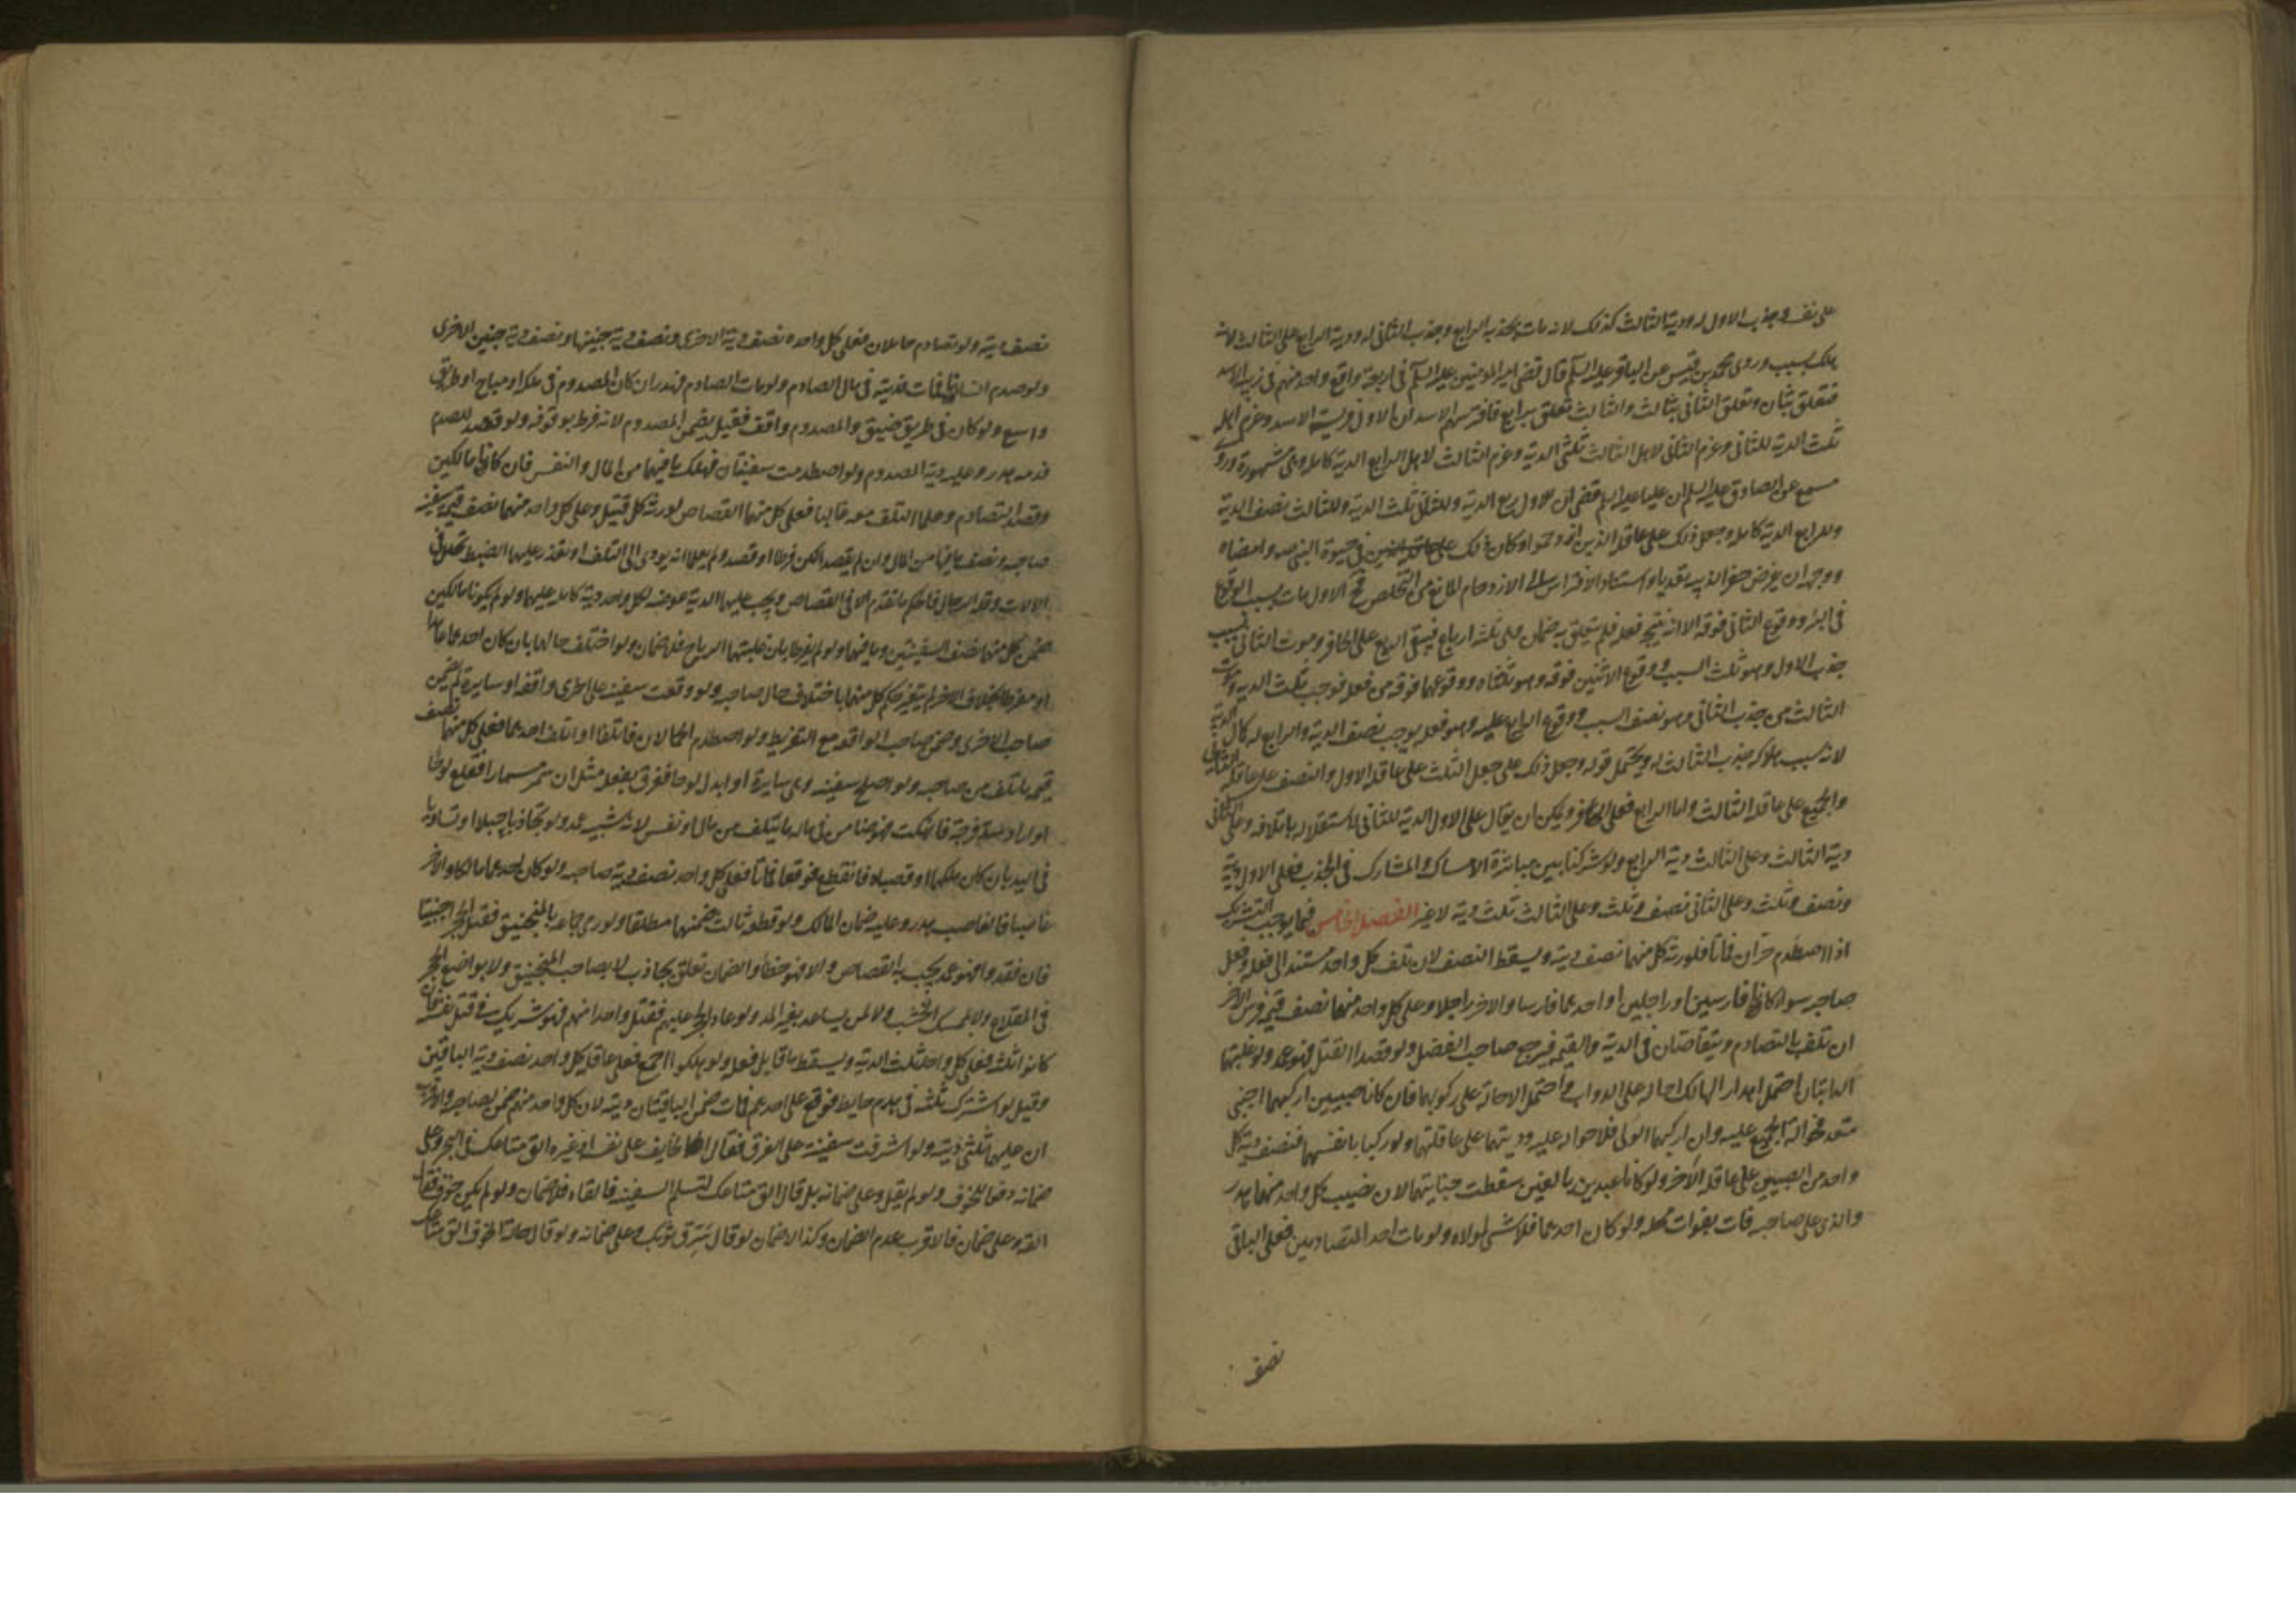 على نفسه وجذب الاول له ودية الثالث كذلك لانه مات بجذبه الرابع وجذب الثاني له ودية الرابع على الثالث لانه
هلك بسببه وروى محمد بن قيس عن الباقر عليه السلم قال قضى امير المؤمنين عليه السلم في اربعة واقع واحد منهم في زبية الاسد
فتعلق بثان وتعلق الثاني بثالث والثالث تعلق برابع فافترسهم الاسد ان الاول فريسة الاسد وغرم اهله
ثلث الدية للثاني وغرم الثاني لاهل الثالث ثلثي الدية وغرم الثالث لاهل الرابع الدية كاملة وهي مشهورة وروى
مسمع عن الصادق عليه السلم ان عليا عليه السلم قضى ان للاول ربع الدية وللثاني ثلث الدية وللثالث نصف الدية
وللرابع الدية كاملة وجعل ذلك على عاقلة الذين ازدحموا وكان ذلك في حيوة النبي صه وامضاه
ووجه ان يفرض حفر الزبية تعديا واستناد الافتراس الى الازدحام المانع من التخلص فمع الاول مات بسبب الوقوع
في البئر ووقوع الثاني فوقه الا انه نتيجة فعله فلم يتعلق به ضمان فله ثلثة ارباع فبقي الربع على الحافر وموت الثاني بسبب
جذب الاول وهو ثلث السبب ووقوع الاثنين فوقه وهو ثلثاه ووقوعهما فوقه من فعله فوجب ثلث الدية وموت
الثالث من جذب الثاني وهو نصف السبب ووقوع الرابع عليه وهو فعله يوجب نصف الدية والرابع له كمال الدية
لانه سبب هلاكه جذب الثالث له ويحتمل قوله وجعل ذلك على جعل الثلث على عاقلة الاول والنصف على عاقلة الثاني
والجميع على عاقلة الثالث واما الرابع فعلى الحافر ويمكن ان يقال على الاول الدية للثاني لاستقلاله باتلافه وعلى الثاني
دية الثالث وعلى الثالث دية الرابع ولو شركنا بين مباشرة الامساك والمشارك في الجذب فعلى الاول دية
ونصف وثلث وعلى الثاني نصف وثلث وعلى الثالث ثلث دية لا غير الفصل الخامس فيما يوجب التشريك
اذا اصطدم حران فماتا فلورثة كل منهما نصف ديته ويسقط النصف لان تلف كل واحد مستند الى فعله وفعل
صاحبه سواء كانا فارسين او راجلين او احدهما فارسا والاخر راجلا وعلى كل واحد منهما نصف قيمة فرس الاخر
ان تلف بالتصادم ويتقاصان في الدية والقيمة فيرجع صاحب الفضل ولو قصدا القتل فهو عمد ولو غلبتهما
الدابتان احتمل اهدار الهالك احالة على الدواب واحتمل الاحالة على ركوبهما فان كانا صبيين اركبهما اجنبي
متعد فحوالة الجميع عليه وان اركبهما الولي فلا حوالة عليه وديتهما على عاقلتهما ولو ركبا بانفسهما فنصف دية كل
واحد من الصبيين على عاقلة الآخر ولو كانا عبدين بالغين سقطت جنايتهما لان نصيب كل واحد منهما هدر
والذي على صاحبه فات بفوات محله ولو كان احدهما فلا شي لمولاه ولو مات احد المتصادمين فعلى الباقي
نصف
نصف ديته ولو تصادم حاملان فعلى كل واحدة نصف دية الاخرى ونصف دية جنينها ونصف دية جنين الاخرى
ولو صدم انسانا فمات فديته في مال الصادم ولو مات الصادم فهدر ان كان المصدوم في ملكه او مباح او طريق
واسع ولو كان في طريق ضيق والمصدوم واقف فقيل يضمن المصدوم لانه فرط بوقوفه ولو قصد الصدم
فدمه هدر وعليه دية المصدوم ولو اصطدمت سفينتان فهلك ما فيهما من المال والنفس فان كانا مالكين
وقصد التصادم وعلما التلف معه غالبا فعلى كل منهما القصاص لورثة كل قتيل وعلى كل واحد منهما نصف قيمة سفينة
صاحبه ونصف ما فيها من المال وان لم يقصدا لكن فرطا او قصدا ولم يعلما انه يودي الى التلف او تعذر عليهما الضبط لخلل في
الالات وقلة الرجال فالحكم ما تقدم الا في القصاص ويجب عليهما الدية عوضه لكل واحد دية كاملة عليهما ولو لم يكونا مالكين
ضمن كل منهما نصف السفينتين وما فيهما ولو لم يفرطا بان غلبتهما الرياح فلا ضمان ولو اختلف حالهما بان كان احدهما عامدا
او مفرطا بخلاف الاخر لم يتغير حكم كل منهما باختلاف حال صاحبه ولو وقعت سفينة على اخرى واقفة او سايرة لم يضمن
صاحب الاخرى وضمن صاحب الواقعة مع التفريط ولو اصطدم الحمالان فاتلفا او اتلف احدهما فعلى كل منهما نصف
قيمة ما تلف من صاحبه ولو اصلح سفينة وهي سايرة او ابدل لوحا فغرق بفعله مثل ان سمر مسمارا فقلع لوحا
او اراد سد فرجة فانهتكت فهو ضامن في ماله ما يتلف من مال او نفس لانه شبيه عمد ولو تجاذبا حبلا وتساويا
في اليد بان كان ملكهما او قصباه فانقطع فوقعا فماتا فعلى كل واحد نصف دية صاحبه ولو كان احدهما مالكا والاخر
غاصبا فالغاصب هدر وعليه ضمان المالك ولو قطعه ثالث ضمنهما مطلقا ولو رمى جماعة بالمنجنيق فقتل الحجر اجنبيا
فان قصدوا فهو عمد يجب به القصاص والا فهو خطأ والضمان يتعلق بجاذب لا بصاحب المنجنيق ولا بواضع الحجر
في المقلاع ولا بممسك الخشب ولا لمن يساعد بغير المد ولو عاد الحجر عليهم فقتل واحدا منهم فهو شريك في قتل نفسه فان
كانوا ثلثة فعلى كل واحد ثلث الدية ويسقط ما قابل فعله ولو هلكوا اجمع فعلى عاقلة كل واحد نصف دية الباقين
وقيل لو اشترك ثلثة في هدم حايط فوقع على احدهم فمات ضمن الباقيتان ديته لان كل واحد منهم ضمن لصاحبه والاقرب
ان عليهما ثلثي ديته ولو اشرفت سفينة على الغرق فقال الخايف على نفسه او غيره الق متاعك في البحر وعلي
ضمانه دفعا للخوف ولو لم يقل وعلي ضمانه بل قال الق متاعك لتسلم السفينة فالقاه فلا ضمان ولو لم يكن خوف فقال
القه وعلي ضمان فالاقرب عدم الضمان وكذا لا ضمان لو قال مزق ثوبك وعلي ضمانه ولو قال حالة الخوف الق متاعك